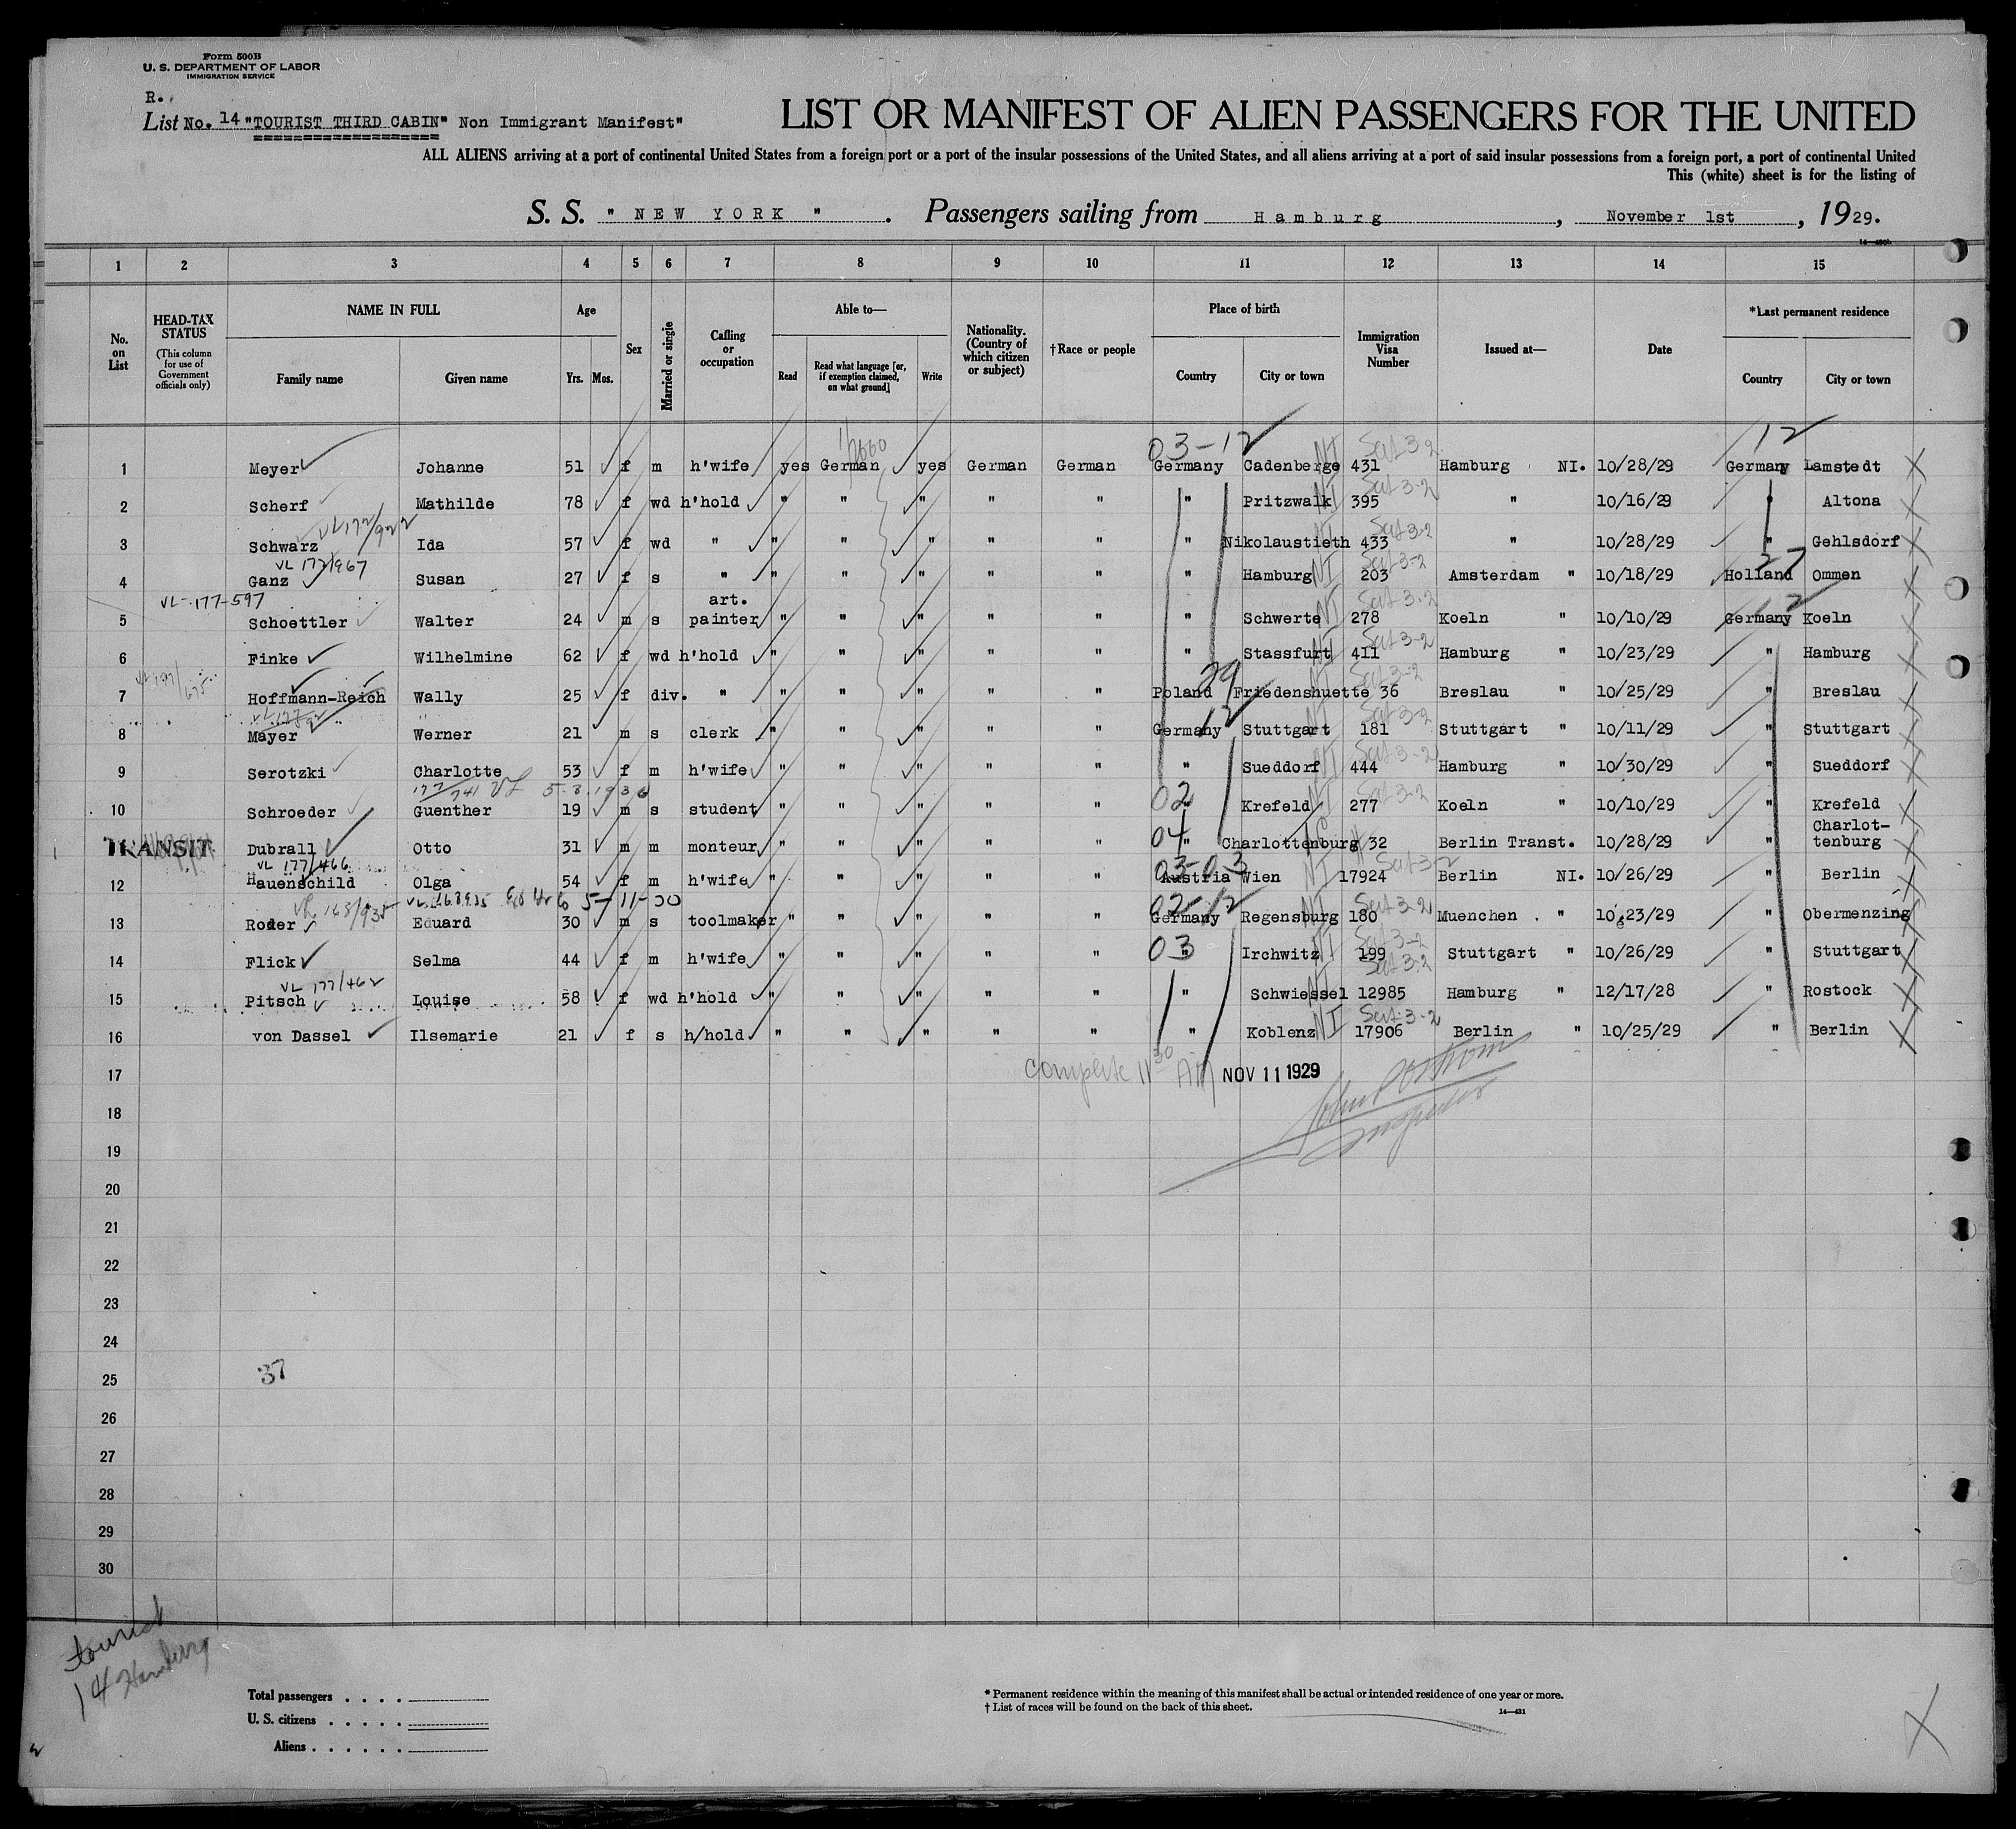 Form 500B
U. S. DEPARTMENT OF LABOR
IMMIGRATION SERVICE
R.
List No. 14 "TOURIST THIRD CABIN" Non Immigrant Manifest"
LIST OR MANIFEST OF ALIEN PASSENGERS FOR THE UNITED
ALL ALIENS arriving at a port of continental United States from a foreign port or a port of the insular possessions of the United States, and all aliens arriving at a port of said insular possessions from a foreign port, a port of continental United
This (white) sheet is for the listing of
S. S. " NEW YORK ". Passengers sailing from Hamburg, November 1st, 1929.
1 2 3 4 5 6 7 8 9 10 11 12 13 14 15
No. on List
HEAD-TAX STATUS (This column for use of Government officials only)
NAME IN FULL Family name Given name
Age Yrs. Mos.
Sex
Married or single
Calling or occupation
Able to— Read Read what language [or, if exemption claimed, on what ground] Write
Nationality. (Country of which citizen or subject)
†Race or people
Place of birth Country City or town
Immigration Visa Number
Issued at—
Date
*Last permanent residence Country City or town
03-12 12
1 Meyer Johanne 51 f m h'wife yes German yes German German Germany Cadenberge 431 Hamburg NI. 10/28/29 Germany Lamstedt
2 Scherf Mathilde 78 f wd h'hold " " " " " " Pritzwalk 395 " 10/16/29 " Altona
3 Schwarz Ida 57 f wd " " " " " " " Nikolaustieth 433 " 10/28/29 " Gehlsdorf
VL 177/967 27
4 Ganz Susan 27 f s " " " " " " " Hamburg 203 Amsterdam " 10/18/29 Holland Ommen
VL-177-597 art. 12
5 Schoettler Walter 24 m s painter " " " " " " Schwerte 278 Koeln " 10/10/29 Germany Koeln
6 Finke Wilhelmine 62 f wd h'hold " " " " " " Stassfurt 411 Hamburg " 10/23/29 " Hamburg
29
7 Hoffmann-Reich Wally 25 f div. " " " " " " Poland Friedenshuette 36 Breslau " 10/25/29 " Breslau
12
8 Mayer Werner 21 m s clerk " " " " " Germany Stuttgart 181 Stuttgart " 10/11/29 " Stuttgart
9 Serotzki Charlotte 53 f m h'wife " " " " " " Sueddorf 444 Hamburg " 10/30/29 " Sueddorf
177/741 VL 5.3.1936 02
10 Schroeder Guenther 19 m s student " " " " " Krefeld 277 Koeln " 10/10/29 " Krefeld
04 Charlot-
11 TRANSIT Dubrall Otto 31 m m monteur " " " " " " Charlottenburg 32 Berlin Transt. 10/28/29 " tenburg
VL 177/466 03-03
12 Hauenschild Olga 54 f m h'wife " " " " " Austria Wien 17924 Berlin NI. 10/26/29 " Berlin
VL 168/935 02-12
13 Roder Eduard 30 m s toolmaker " " " " " Germany Regensburg 180 Muenchen " 10/23/29 " Obermenzing
03
14 Flick Selma 44 f m h'wife " " " " " " Irchwitz 199 Stuttgart " 10/26/29 " Stuttgart
VL 177/462
15 Pitsch Louise 58 f wd h'hold " " " " " " Schwiessel 12985 Hamburg " 12/17/28 " Rostock
16 von Dassel Ilsemarie 21 f s h/hold " " " " " " Koblenz 17906 Berlin " 10/25/29 " Berlin
17 Complete 11 30 AM NOV 11 1929
18
Inspector
19
20
21
22
23
24
25
37
26
27
28
29
30
tourist
14 Hamburg
Total passengers
U. S. citizens
Aliens
* Permanent residence within the meaning of this manifest shall be actual or intended residence of one year or more.
† List of races will be found on the back of this sheet.
14—431